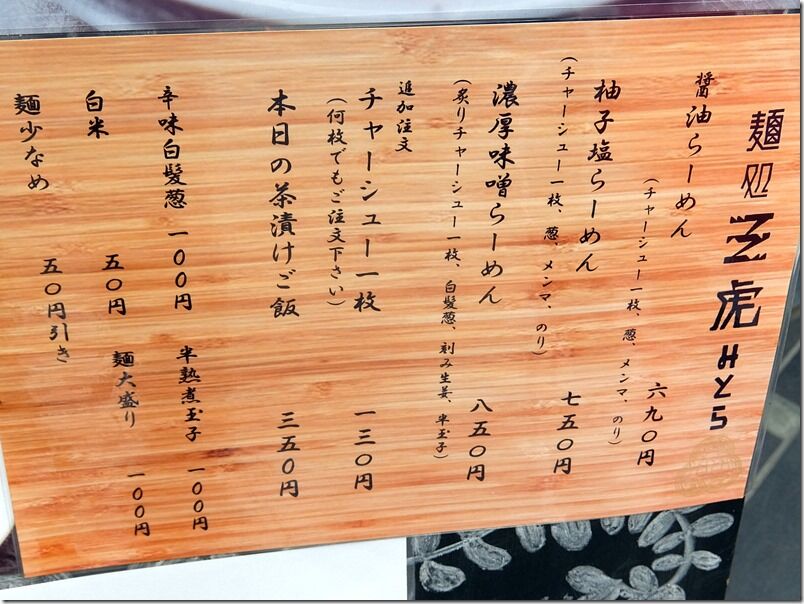 麺処 三虎 みとら
醤油らーめん 六九〇円
(チャーシュー一枚、葱、メンマ、のり)
柚子塩らーめん 七五〇円
(チャーシュー一枚、葱、メンマ、のり)
濃厚味噌らーめん 八五〇円
(炙りチャーシュー一枚、白髪葱、刻み生姜、半玉子)
追加注文
チャーシュー一枚 一三〇円
(何枚でもご注文下さい)
本日の茶漬けご飯 三五〇円
辛味白髪葱 一〇〇円
半熟煮玉子 一〇〇円
白米 五〇円
麺大盛り 一〇〇円
麺少なめ 五〇円引き